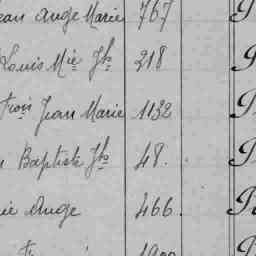 Jean Ange Marie 767 P
Louis Mie Jh 218 P
Frois Jean Marie 1132 P
Baptiste Jh 48. P
Ange 466. P